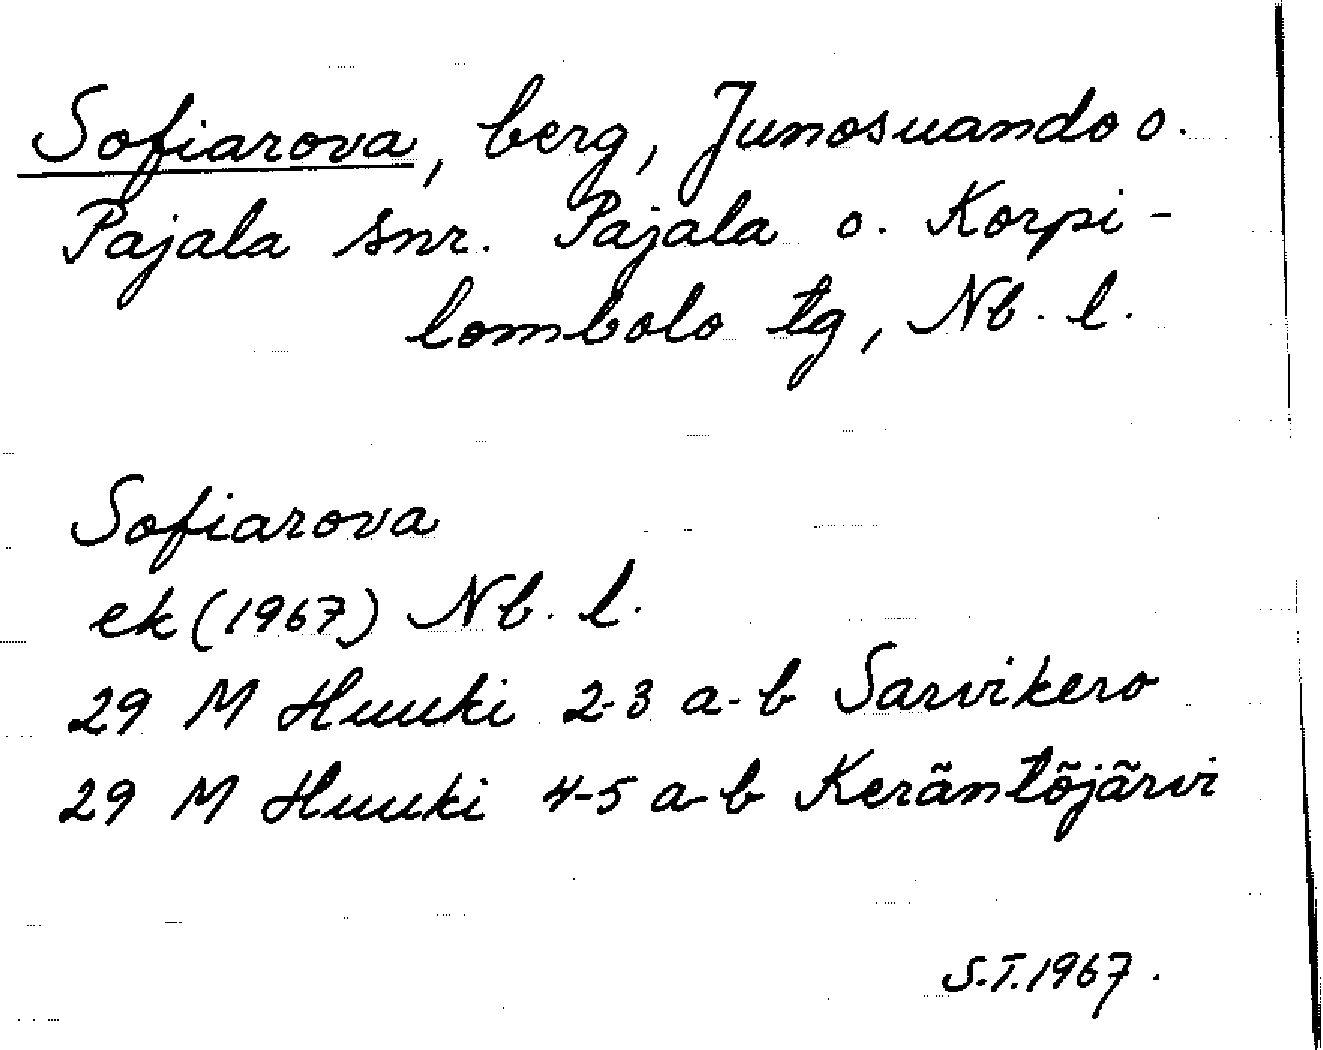 Sofiarova, berg, Junosuando o.
Pajala snr. Pajala o. Korpi-
lombolo tg, Nb. l.
Sofiarova
ek (1967) Nb. l.
29 M Huuki 2-3 a-b Sarvikero
29 M Huuki 4-5 a-b Keräntöjärvi
S.T. 1967.